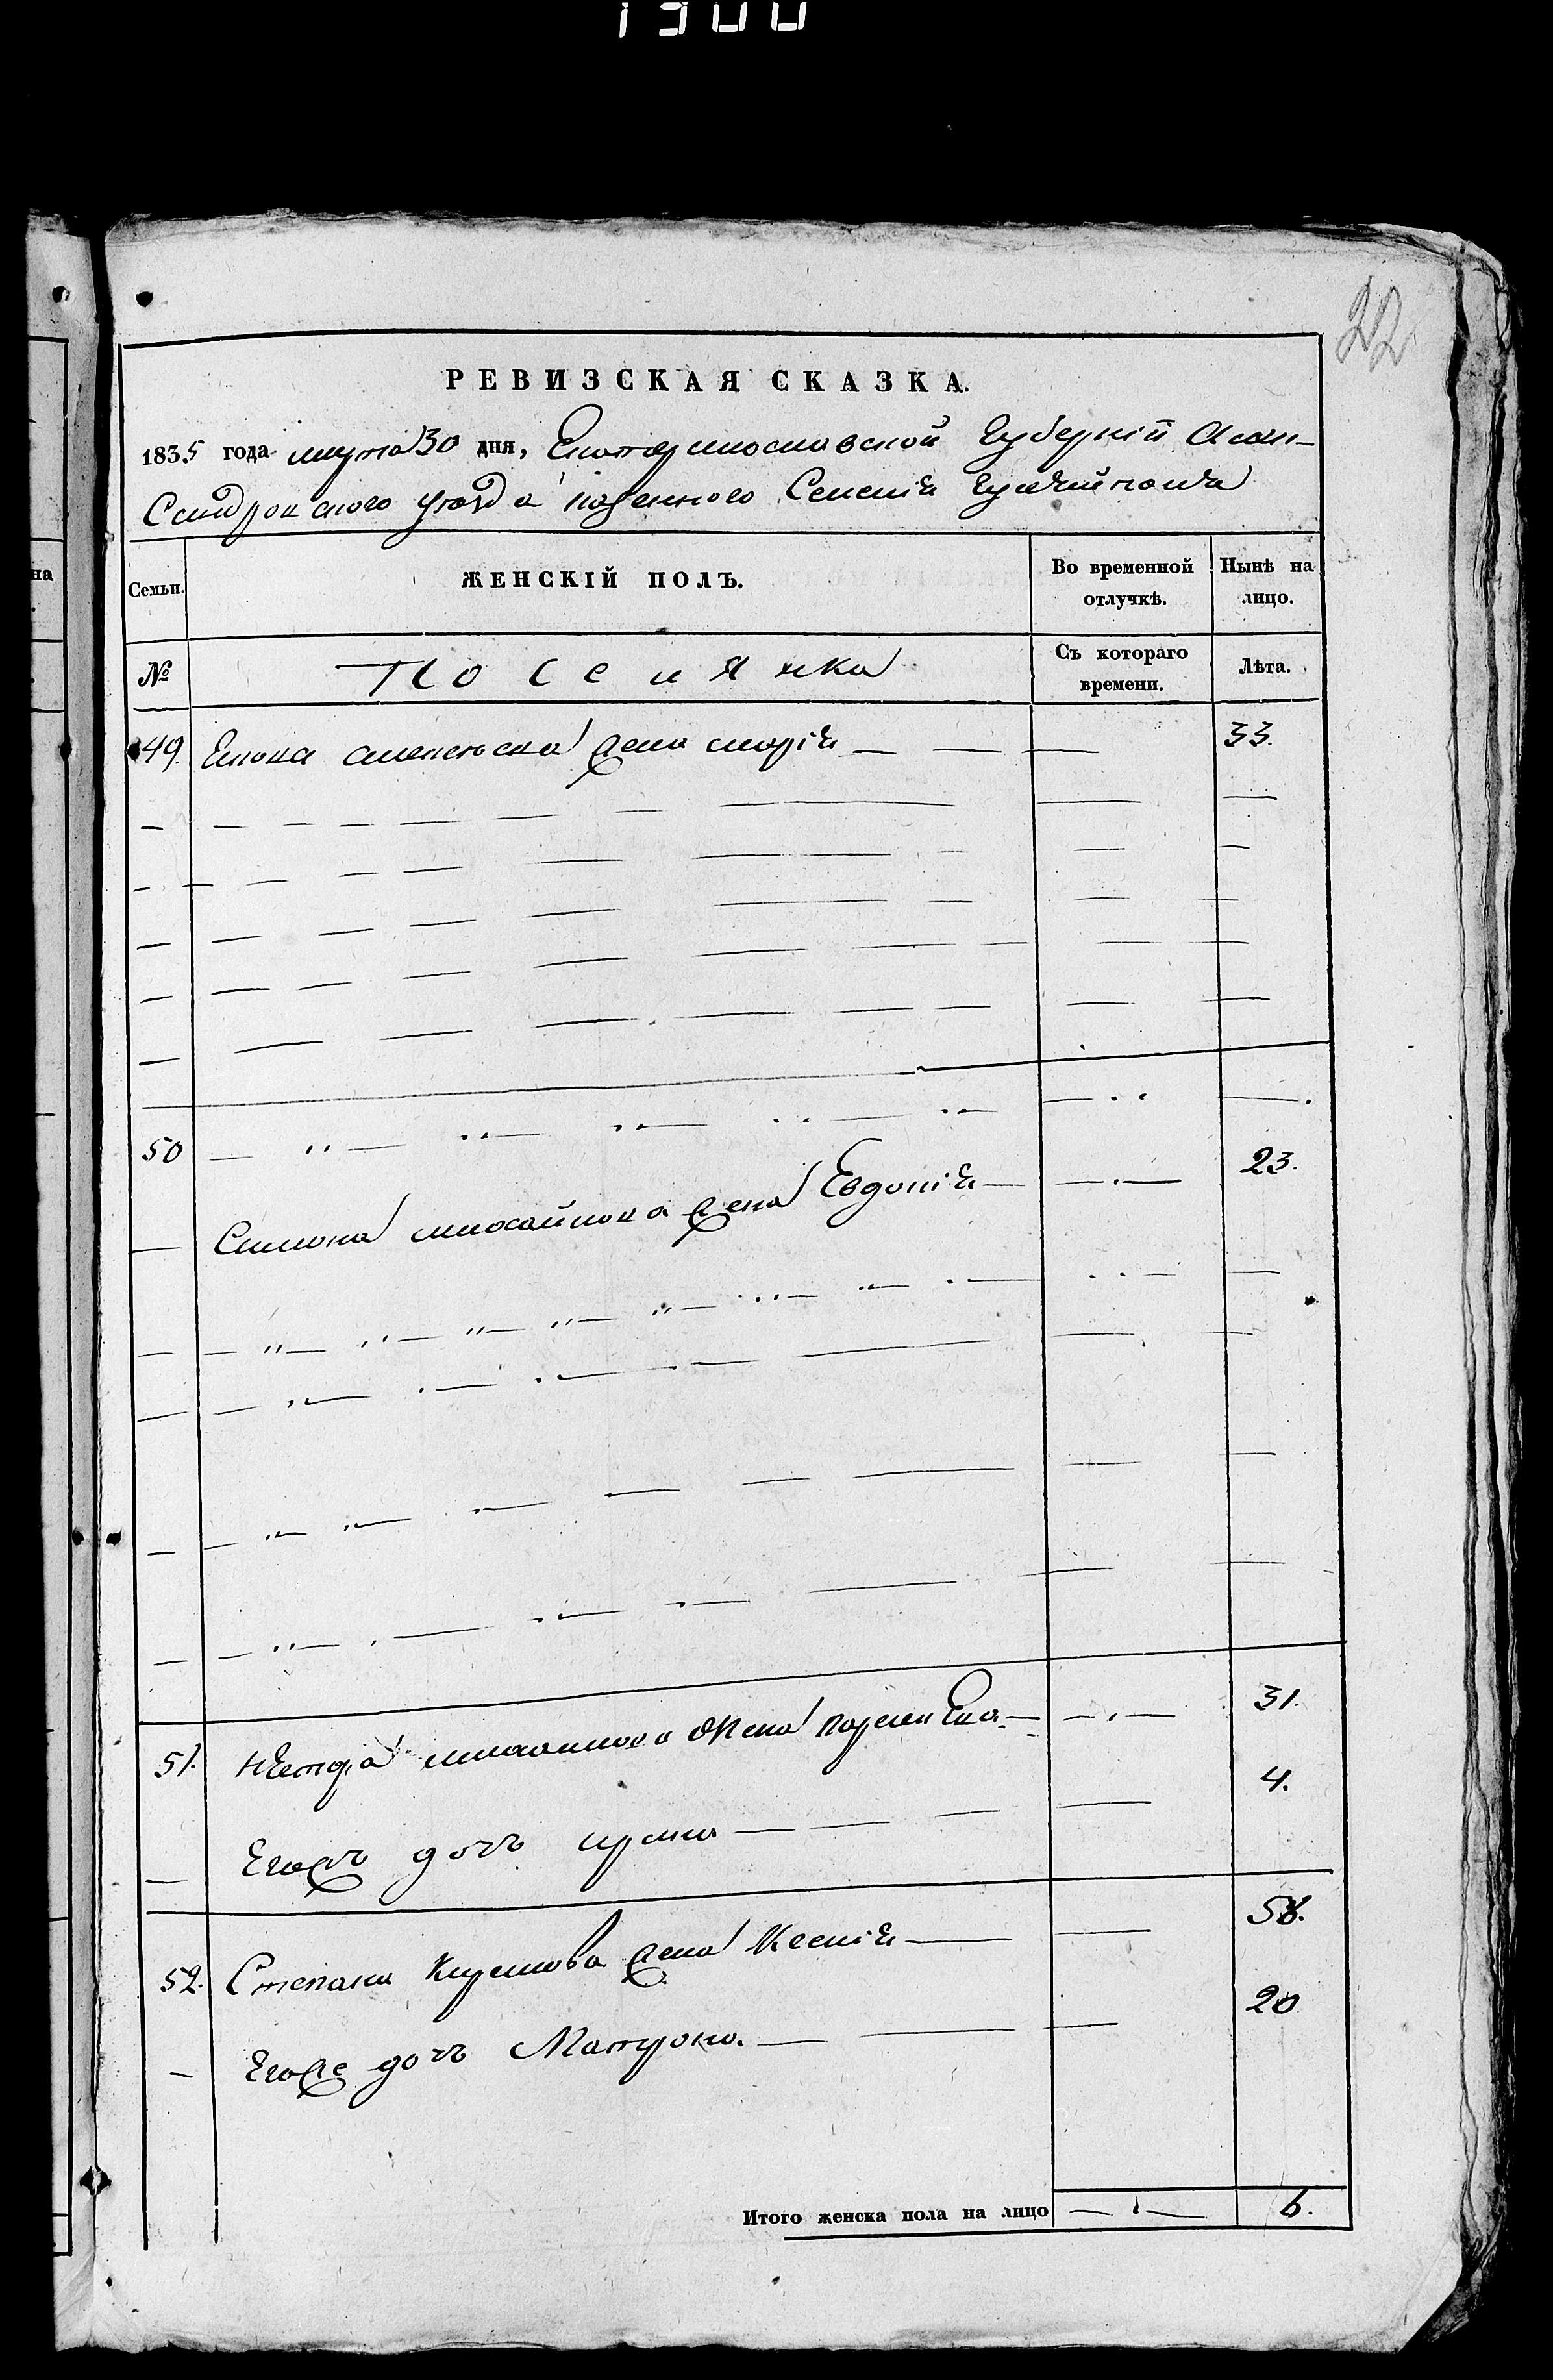 1300
22
РЕВИЗСКАЯ СКАЗКА.
1835 года марта 30 дня, Екатеринославской Губернїй Алек-
Сандровского уезда казенного Селенїя
Семьи.
ЖЕНСКІЙ ПОЛЪ.
Во временной отлучкѣ.
Нынѣ на лицо.
№
Поселянка
Съ котораго времени.
Лѣта.
49. жена марїя — — — 33.
50
Симона михайлова жена Евдокїя — — 23.
51. Петра михаилова жена — — 31.
Егожъ дочь ирина — — — — 4.
52. Степана Климова жена Ксенїя — — 58.
Егоже дочь Матрона. — — — 20
Итого женска пола на лицо — 6.